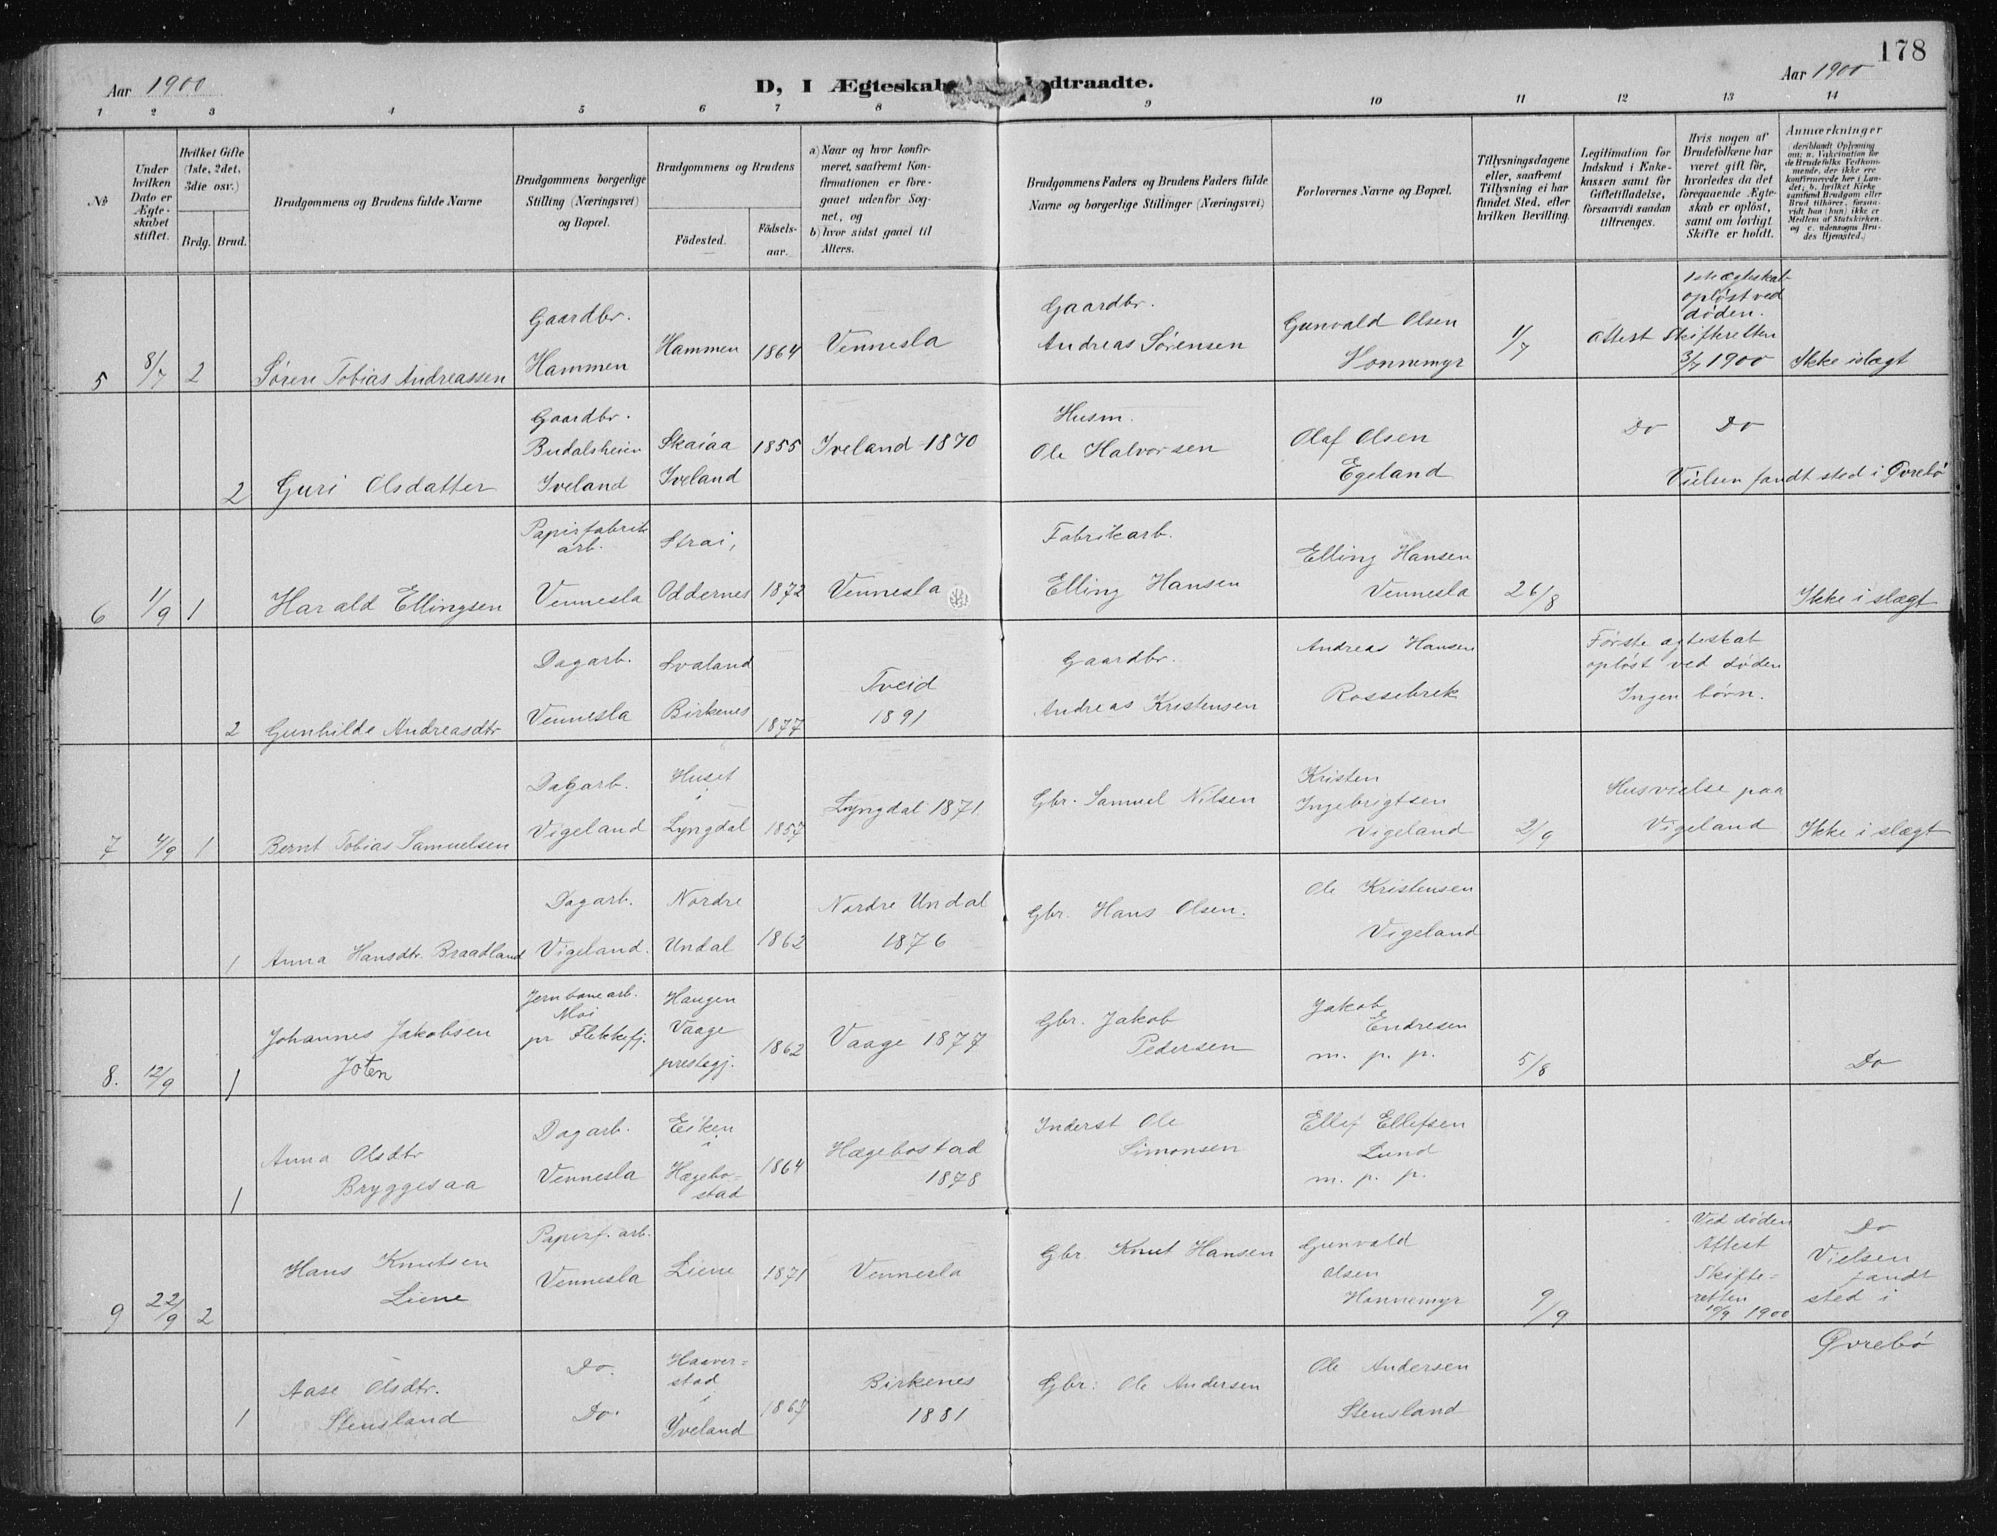 178
Aar 1900
D, I Ægteskab
dtraadte.
Aar 1900
1 2 3 4 5 6 7 8 9 10 11 12 13 14
№
Under hvilken Dato er Ægteskabet stiftet.
Hvilket Gifte (1ste, 2det, 3die osv.)
Brdg. Brud.
Brudgommens og Brudens fulde Navne
Brudgommens borgerlige Stilling (Næringsvei) og Bopæl.
Brudgommens og Brudens
Födested.
Födselsaar.
a) Naar og hvor konfirmeret, saafremt Konfirmationen er foregaaet udenfor Sognet, og
b) hvor sidst gaaet til Alters.
Brudgommens Faders og Brudens Faders fulde Navne og borgerlige Stillinger (Næringsvei)
Forlovernes Navne og Bopæl.
Tillysningsdagene eller, saafremt Tillysning ei har fundet Sted, efter hvilken Bevilling.
Legitimation for Indskud i Enkekassen samt for Giftetilladelse, forsaavidt saadan tiltrænges.
Hvis nogen af Brudefolkene har været gift för, hvorledes da det foregaaende Ægteskab er oplöst, samt om lovligt Skifte er holdt.
Anmærkninger (deriblandt Oplysning om: a. Vakcination for de Brudefolks Vedkommende, der ikke ere konfirmerede her i Landet; b. hvilket Kirkesamfund Brudgom eller Brud tilhörer, forsaavidt han (hun) ikke er Medlem af Statskirken, og c. udensogns Brudes Hjemsted.)
5 8/7 2 Søren Tobias Andreassen
Gaardbr. Hammen
Hammen 1864 Vennesla
Gaardbr. Andreas Sørensen
Gunvald Olsen Honnemyr
1/7
1ste ægteskab opløst ved døden.
Attest Skifteretten 3/7 1900
Ikke i slægt
2 Guri Olsdatter
Gaardbr. Budalsheien Iveland
Skaiaa Iveland 1855 Iveland 1870
Husm. Ole Halvorsen
Olaf Olsen Egeland
Do Do
Vielsen fandt sted i Øvrebø
6 1/9 1 Harald Ellingsen
Papirfabrik arb. Vennesla
Strai, Oddernes 1872 Vennesla
Fabrikarb. Elling Hansen
Elling Hansen Vennesla
26/8
Ikke i slægt
2 Gunhilde Andreasdtr
Dagarb. Vennesla
Svaland Birkenes 1877
Tveid 1891
Gaardbr. Andreas Kristensen
Andreas Hansen Rossebrek
Første ægteskab opløst ved døden Ingen børn.
7 4/9 1 Bernt Tobias Samuelsen
Dagarb. Vigeland
Huset i Lyngdal 1857
Lyngdal 1871
Gbr. Samuel Nilsen
Kristen Ingebrigtsen Vigeland
2/9
Husvielse paa Vigeland
Ikke i slægt
1 Anna Hansdtr. Braadland
Dagarb. Vigeland.
Nordre Undal 1862
Nordre Undal 1876
Gbr. Hans Olsen.
Ole Kristensen Vigeland
8. 12/9 1 Johannes Jakobsen Joten
Jernbanearb. Moi pr Flekkefj.
Haugen Vaage prestegj. 1862
Vaage 1877
Gbr. Jakob Pedersen
Jakob Endresen m. p. p.
5/8
Do
1 Anna Olsdtr Bryggesaa
Dagarb. Vennesla
Eiken i Hægebostad 1864
Hægebostad 1878
Inderst Ole Simonsen
Ellef Ellefsen Lund m. p. p.
9 22/9 2 Hans Knutsen Liene
Papirf. arb. Vennesla
Liene 1871 Vennesla
Gbr. Knut Hansen
Gunvald Olsen Honnemyr
9/9
Ved døden Attest Skifteretten 10/9 1900
Do Vielsen fandt sted i Øvrebø
1 Aase Olsdtr. Stensland
Do. Do.
Haaverstad i Yveland 1867
Birkenes 1881
Gbr. Ole Andersen
Ole Andersen Stensland